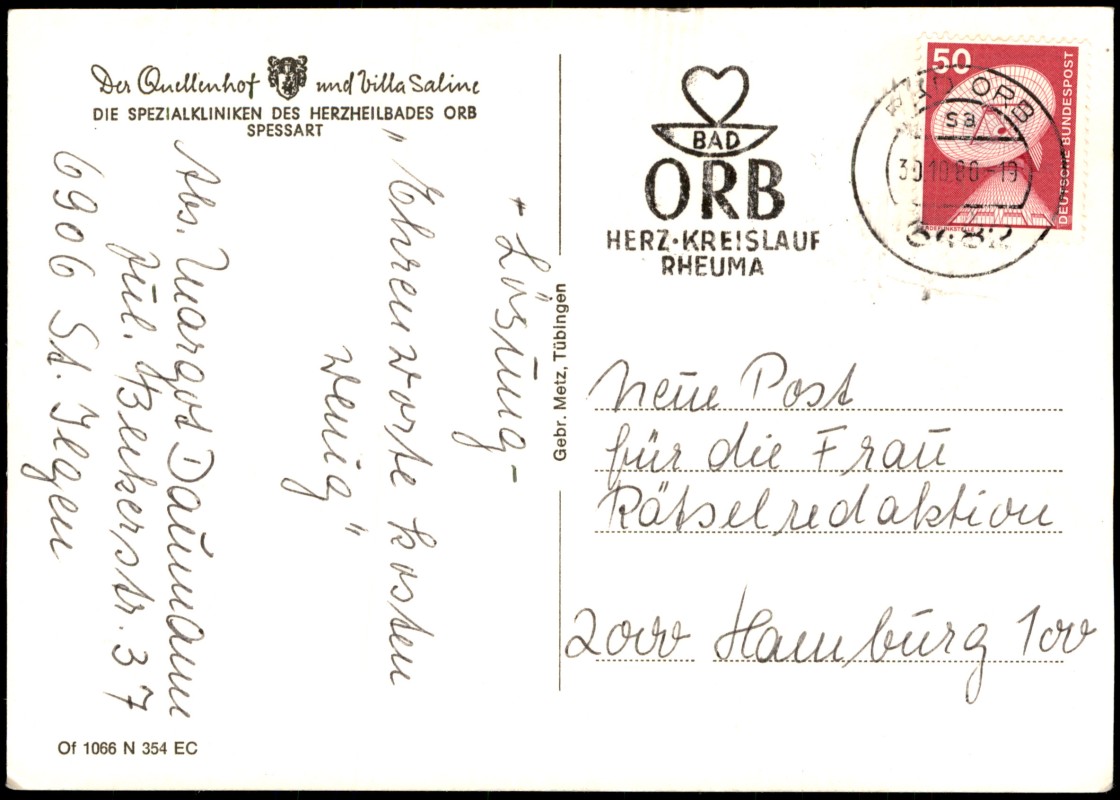 Der Quellenhof und Villa Saline
DIE SPEZIALKLINIKEN DES HERZHEILBADES ORB
SPESSART
Abs. Margot Daumann
Jul. Beckerstr. 37
6906 St. Ilgen
"Ehrenworte kosten
wenig"
+ Lösung -
Gebr. Metz, Tübingen
BAD
ORB
HERZ·KREISLAUF
RHEUMA
50
DEUTSCHE BUNDESPOST
BAD ORB
sa
30.10.80-19
6482
Neue Post
für die Frau
Rätselredaktion
2000 Hamburg 100
Of 1066 N 354 EC